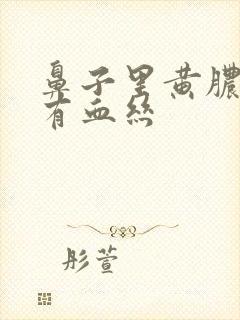 鼻子里黄膿
有血絲
彤萱